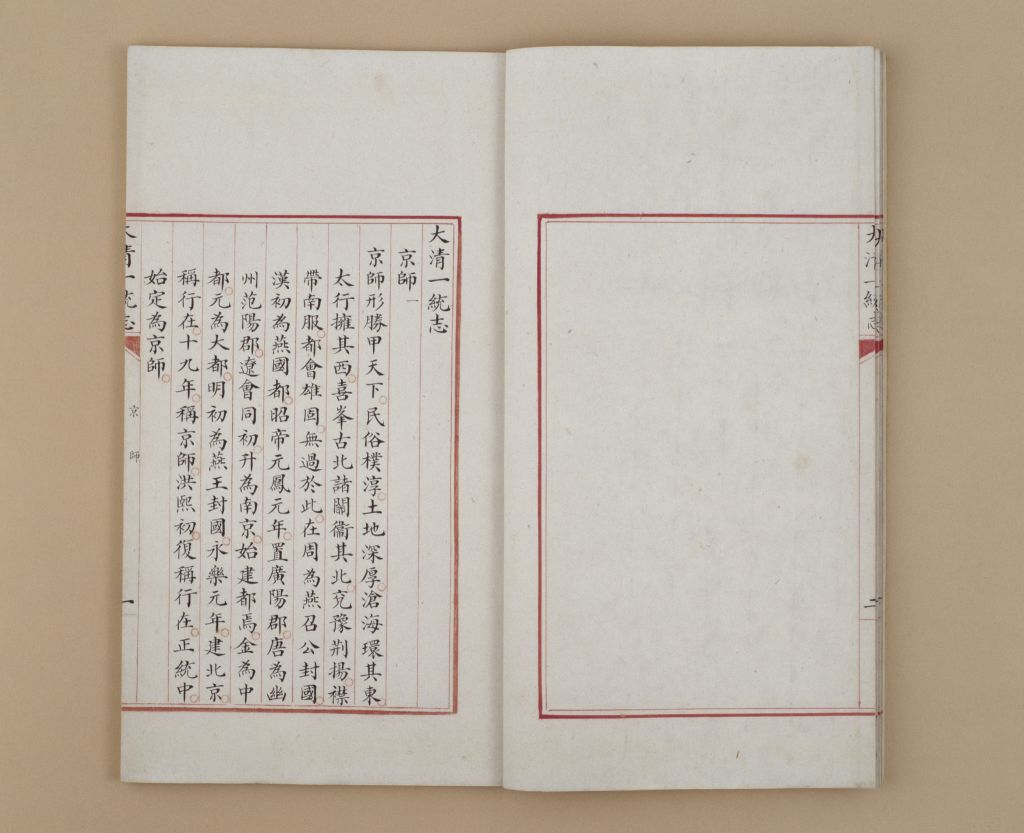 大清一統志
京師一
京師形勝甲天下。民俗樸淳。土地深厚。滄海環其東。
太行擁其西。喜峯古北諸關衞其北。兗豫荆揚。襟
帶南服。都會雄固。無過於此。在周為燕召公封國。
漢初為燕國都。昭帝元鳳元年。置廣陽郡。唐為幽
州范陽郡。遼會同初。升為南京。始建都焉。金為中
都。元為大都。明初為燕王封國。永樂元年。建北京。
稱行在。十九年。稱京師。洪熙初。復稱行在。正統中。
始定為京師。
大清一統志
京師
一
大清一統志
二